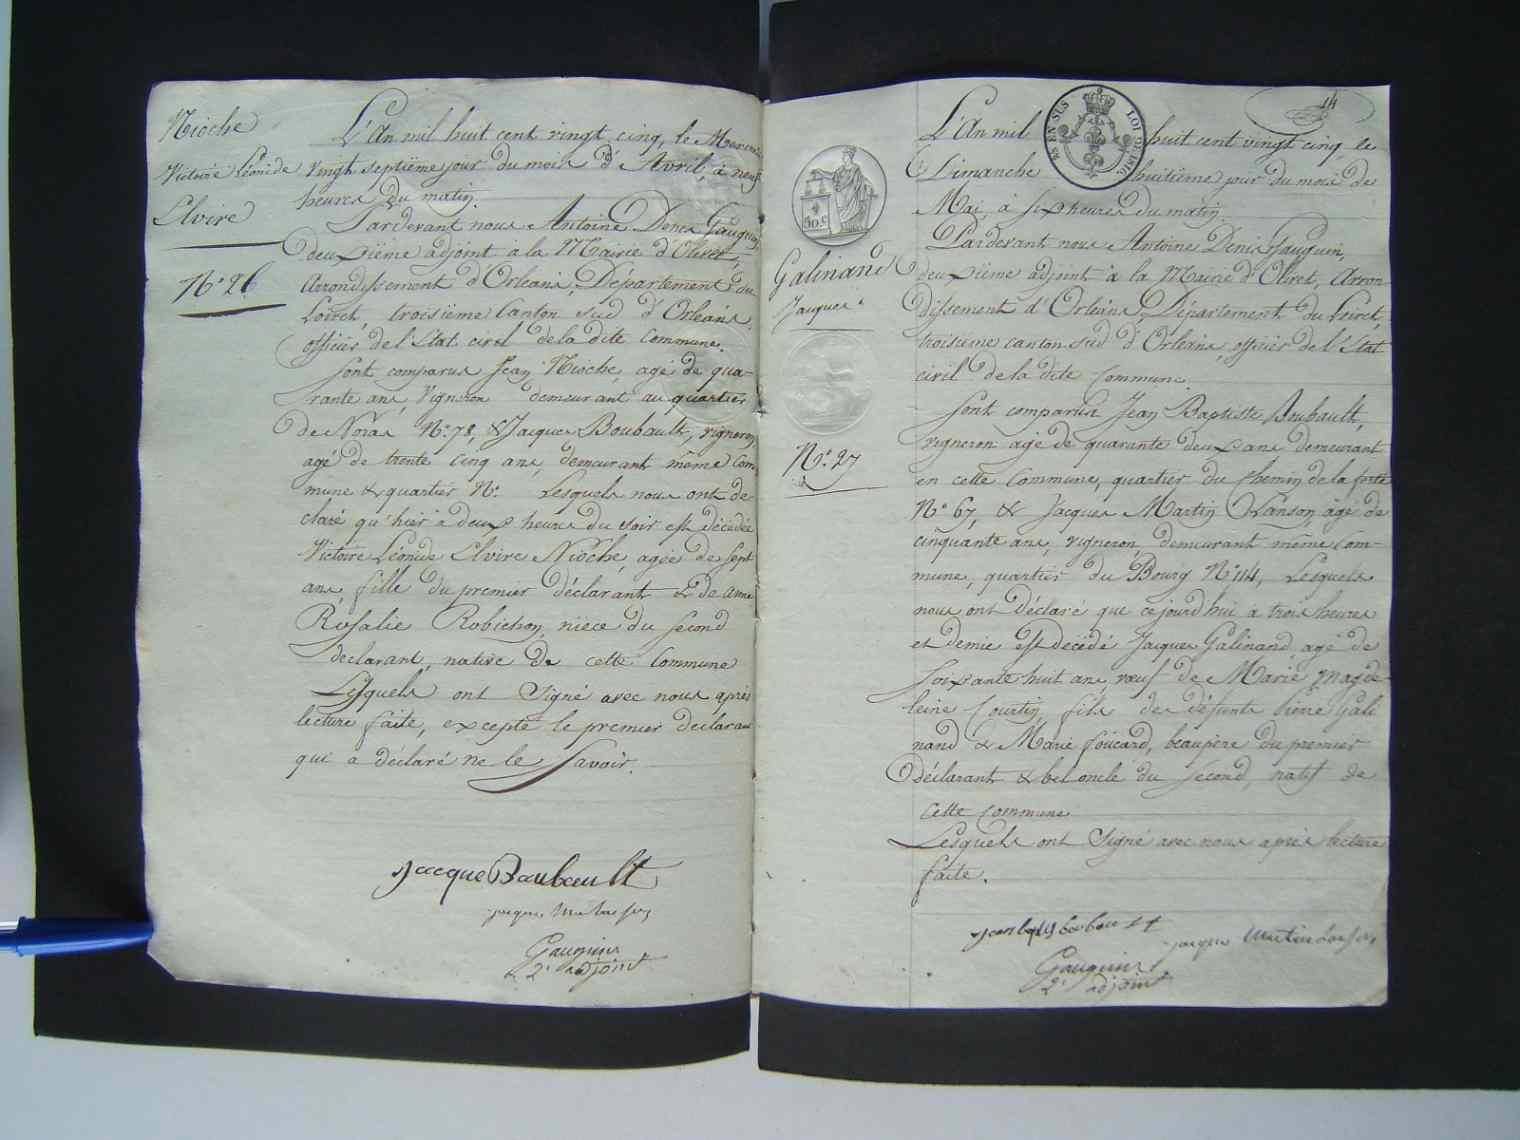 Nioche
Victoire Léonide
Elvire
N.° 26
L'An mil huit cent vingt cinq, le Mercredi
vingt septiême jour du mois d'Avril, à neuf
heures du matin.
Pardevant nous Antoine Denis Gauguin,
deuxiême adjoint à la Mairie d'Olivet,
Arrondissement d'Orléans, Département du
Loiret, troisiême Canton sud d'Orléans,
officier de l'Etat civil de la dite Commune.
Sont comparus Jean Nioche, agé de qua-
rante ans, Vigneron demeurant au quartier
de Noras N.° 78, & Jacques Boubault, vigneron,
agé de trente cinq ans, demeurant même com
mune & quartier N.° Lesquels nous ont dé
claré qu'hier à deux heures du soir est décédée
Victoire Léonide Elvire Nioche, agée de sept
ans, fille du premier déclarant & de anne
Rosalie Robichon, niece du second
declarant, native de cette Commune
Lesquels ont Signé avec nous après
lecture faite, excepté le premier declarant
qui a déclaré ne le Savoir.
Jacque Boubault
Gauguin
2.e adjoint
14
50 c
EN SUS
LOI
Galinand
Jacques
N.° 27
L'An mil huit cent vingt cinq, le
Dimanche huitiême jour du mois de
Mai, à six heures du matin.
Pardevant nous Antoine Denis Gauguin,
deuxiême adjoint à la Mairie d'Olivet, Arron
dissement d'Orléans, Département du Loiret,
troisiême canton sud d'Orléans, officier de l'Etat
civil de la dite Commune.
Sont comparus Jean Baptiste Boubault,
vigneron agé de quarante deux ans demeurant
en cette Commune, quartier du chemin de la forte
N.° 67, & Jacques Martin Lanson, agé de
cinquante ans, vigneron, demeurant même com-
mune, quartier du Bourg N.° 114, Lesquels
nous ont déclaré que cejourd'hui à trois heures
et demie est décédé Jacques Galinand, agé de
soixante huit ans, veuf de Marie Magde-
leine Courtin, fils de défunts Pierre Gali
nand & Marie foucard, beaupère du premier
déclarant & bel oncle du second, natif de
cette Commune
Lesquels ont Signé avec nous après lecture
faite.
Jean boubault
Jacque Martin Lanson
Gauguin
2.e adjoint